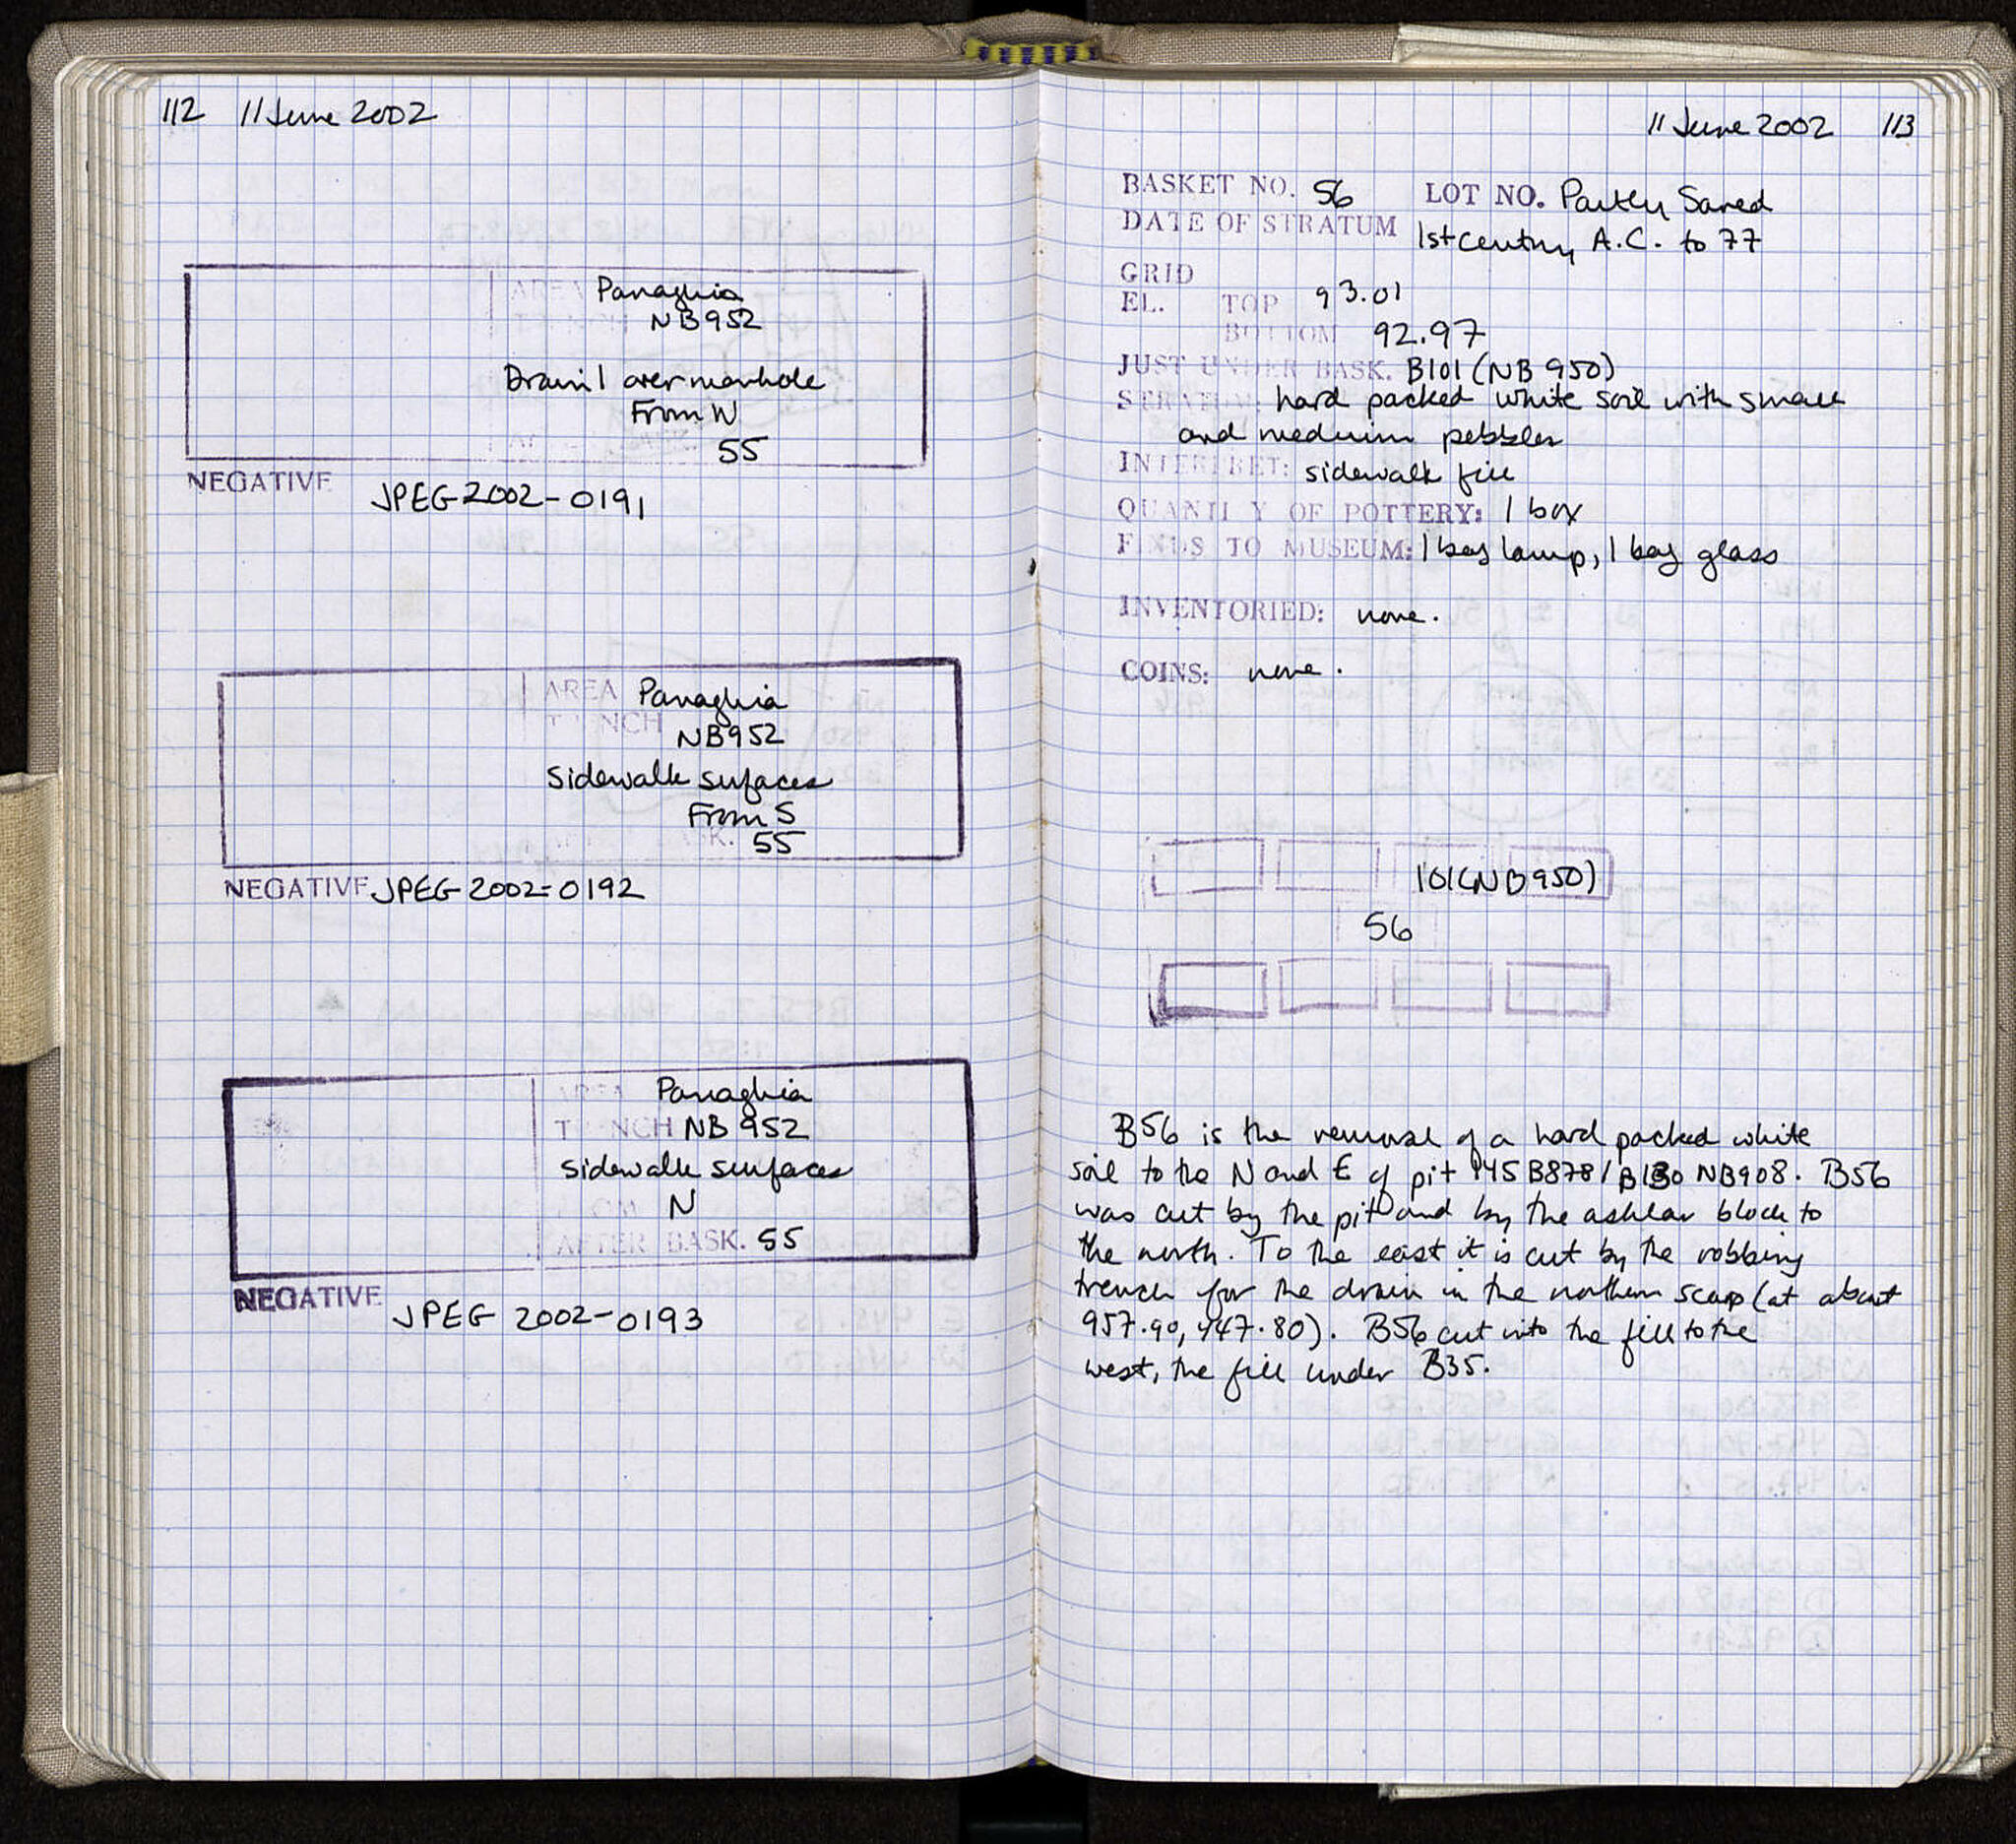 112 11 June 2002
AREA Panaghia
TRENCH NB952
Drain 1 over manhole
From W
55
NEGATIVE JPEG 2002-0191
AREA Panaghia
TRENCH NB952
Sidewalk surfaces
From S
BASK. 55
NEGATIVE JPEG 2002-0192
AREA Panaghia
TRENCH NB 952
sidewalk surfaces
FROM N
AFTER BASK. 55
NEGATIVE JPEG 2002-0193
11 June 2002 113
BASKET NO. 56 LOT NO. Partly Saved
DATE OF STRATUM 1st century A.C. to 77
GRID
EL. TOP 93.01
BOTTOM 92.97
JUST UNDER BASK. B101 (NB 950)
STRATUM: hard packed white soil with small
and medium pebbles
INTERPRET: sidewalk fill
QUANTITY OF POTTERY: 1 box
FINDS TO MUSEUM: 1 bag lamp, 1 bag glass
INVENTORIED: none.
COINS: none.
101(NB950)
56
B56 is the removal of a hard packed white
soil to the N and E of pit B130 NB908. B56
was cut by the pit and by the ashlar block to
the north. To the east it is cut by the robbing
trench for the drain in the northern scarp (at about
957.90, 447.80). B56 cut into the fill to the
west, the fill under B35.